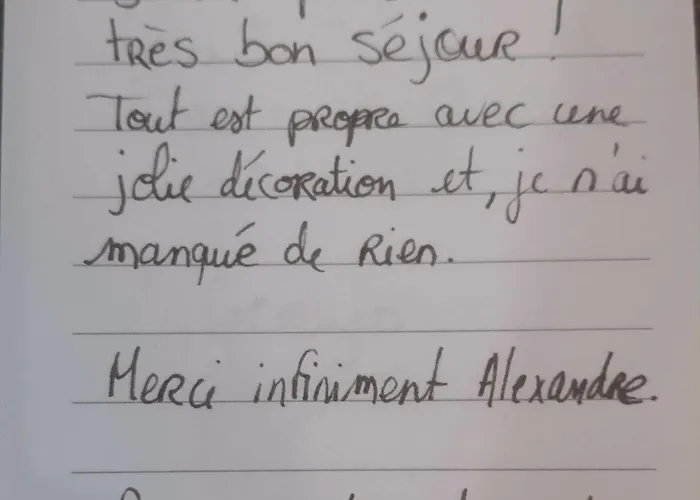 très bon séjour !
Tout est propre avec une
jolie décoration et, je n'ai
manqué de rien.
Merci infiniment Alexandre.